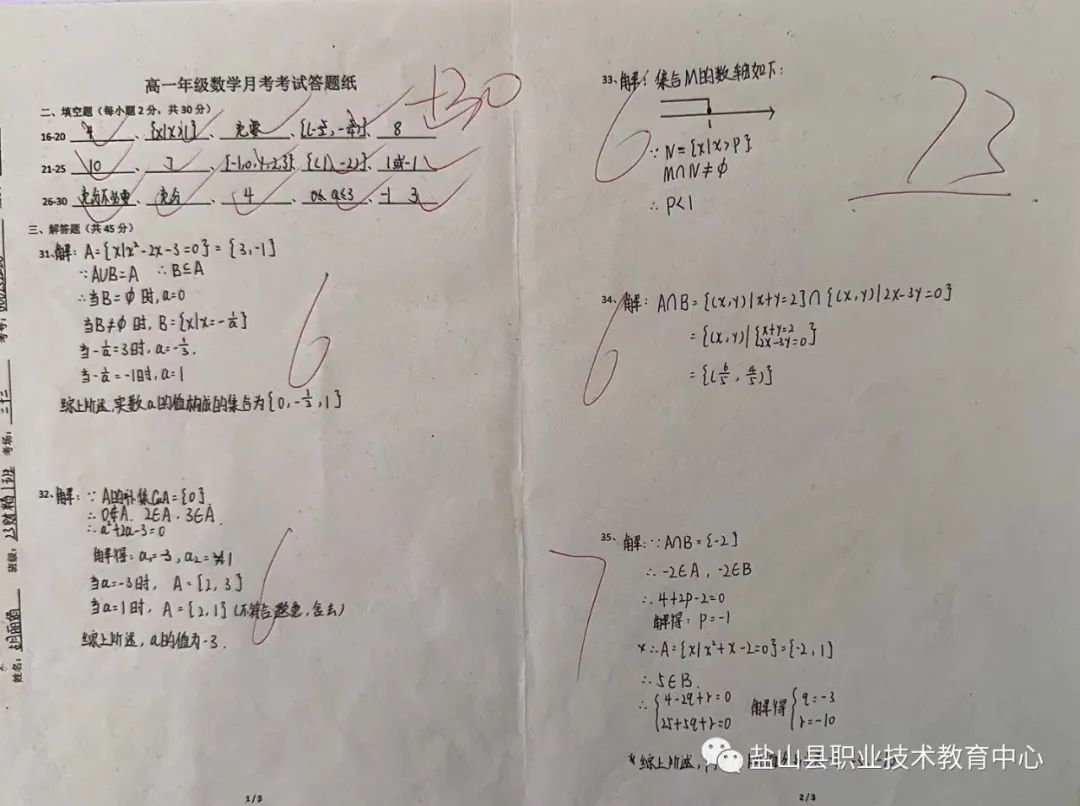 高一年级数学月考考试答题纸
二、填空题（每小题2分，共30分）
+30
16-20 4 、 {x|x>1} 、 充要 、 、 8
21-25 10 、 、 {-1,0,1,2,3} 、 {(1,-2)} 、 1或-1
26-30 充分不必要 、 充分 、 4 、 0≤a≤3 、 -1 3
三、解答题（共45分）
31.解: A={x|x²-2x-3=0}={3,-1}
∵A∪B=A ∴B⊆A
∴当B=∅时, a=0
当B≠∅时, B={x|x=-1/a}
当-1/a=3时, a=-1/3.
当-1/a=-1时, a=1
综上所述,实数a的值构成的集合为{0,-1/3,1}
6
32.解: ∵A的补集CuA={0}
∴0∉A. 2∈A. 3∈A.
∴a²+2a-3=0
解得: a₁=-3, a₂=1
当a=-3时, A={2,3}
当a=1时, A={2,1}(不符合题意,舍去)
综上所述, a的值为-3.
6
考号:
考场: 三十三
班级: 23财精1班
姓名:
1/3
33.解: 集合M的数轴如下:
1
∵N={x|x>P}
M∩N≠∅
∴P<1
6
23
34.解: A∩B={(x,y)|x+y=2}∩{(x,y)|2x-3y=0}
={(x,y)|{x+y=2
2x-3y=0}
={(6/5,4/5)}
6
35.解: ∵A∩B={-2}
∴-2∈A, -2∈B
∴4+2P-2=0
解得: P=-1
∴A={x|x²+x-2=0}={-2,1}
∴5∈B.
∴{4-2q+r=0 解得{q=-3
25+5q+r=0 r=-10
综上所述,
7
盐山县职业技术教育中心
2/3